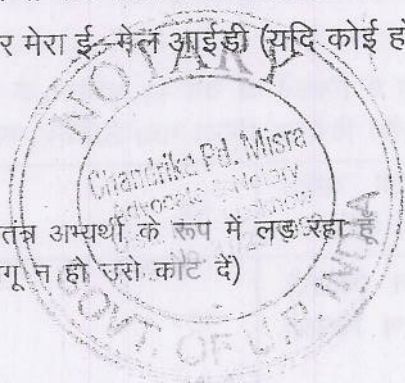 र मेरा ई-मेल आईडी (यदि कोई हो
NOTARY
Chandrika Pd. Misra
Advocate & Notary
तन्त्र अभ्यर्थी के रूप में लड़ रहा हूँ
गू न हो उसे काट दें)
GOVT. OF U.P. INDIA